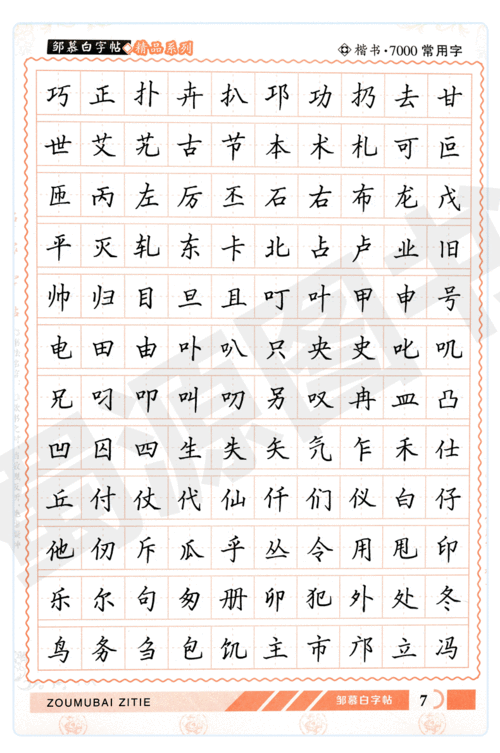 邹慕白字帖 精品系列 楷书·7000常用字
巧 正 扑 卉 扒 邛 功 扔 去 甘
世 艾 艽 古 节 本 术 札 可 叵
匝 丙 左 厉 丕 石 右 布 龙 戊
平 灭 轧 东 卡 北 占 卢 业 旧
帅 归 目 旦 且 叮 叶 甲 申 号
电 田 由 卟 叭 只 央 史 叱 叽
兄 叼 叩 叫 叻 另 叹 冉 皿 凸
凹 囚 四 生 失 矢 氕 乍 禾 仕
丘 付 仗 代 仙 仟 们 仪 白 仔
他 仞 斥 瓜 乎 丛 令 用 甩 印
乐 尔 句 匆 册 卯 犯 外 处 冬
鸟 务 刍 包 饥 主 市 邝 立 冯
ZOUMUBAI ZITIE 邹慕白字帖 7
蜀源图书